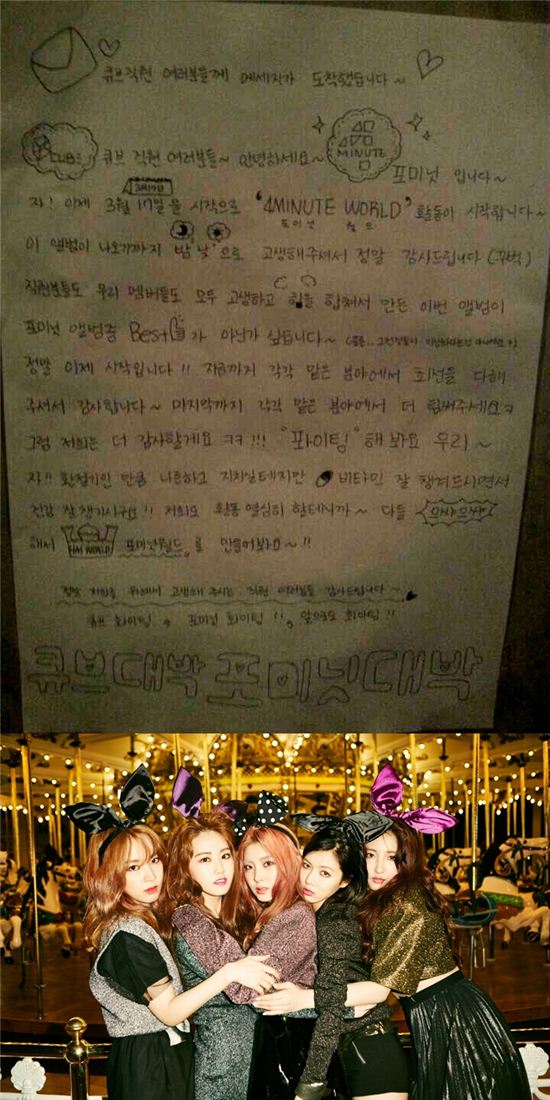 큐브직원 여러분들께 메세지가 도착했습니다~
CUBE 큐브 직원 여러분들~ 안녕하세요~ 4MINUTE 포미닛 입니다~
자! 이제 3월 17일을 시작으로 '4MINUTE WORLD' 활동이 시작합니다~
포미닛 월드
이 앨범이 나오기까지 밤 낮으로 고생해주셔서 정말 감사드립니다(꾸벅)
직원분들도 우리 멤버들도 모두 고생하고 힘을 합쳐서 만든 이번 앨범이
포미닛 앨범중 Best가 아닌가 싶습니다~
정말 이제 시작입니다!! 지금까지 각각 맡은 분야에서 최선을 다해
주셔서 감사합니다~ 마지막까지 각각 맡은 분야에서 더 힘써주세요ㅋ
그럼 저희는 더 감사할게요 ㅋㅋ!!! "퐈이팅" 해봐요 우리~
자!! 환절기인 만큼 나른하고 지치실테지만 비타민 잘 챙겨드시면서
건강 잘 챙기시구요!! 저희도 활동 열심히 할테니까~ 다들 으쌰으쌰
해서 포미닛월드를 만들어봐요~!!
정말 저희를 위해서 고생해 주시는 직원 여러분들 감사드립니다~
큐브 화이팅, 포미닛 화이팅!!, 앞으로도 화이팅!!
큐브대박 포미닛대박